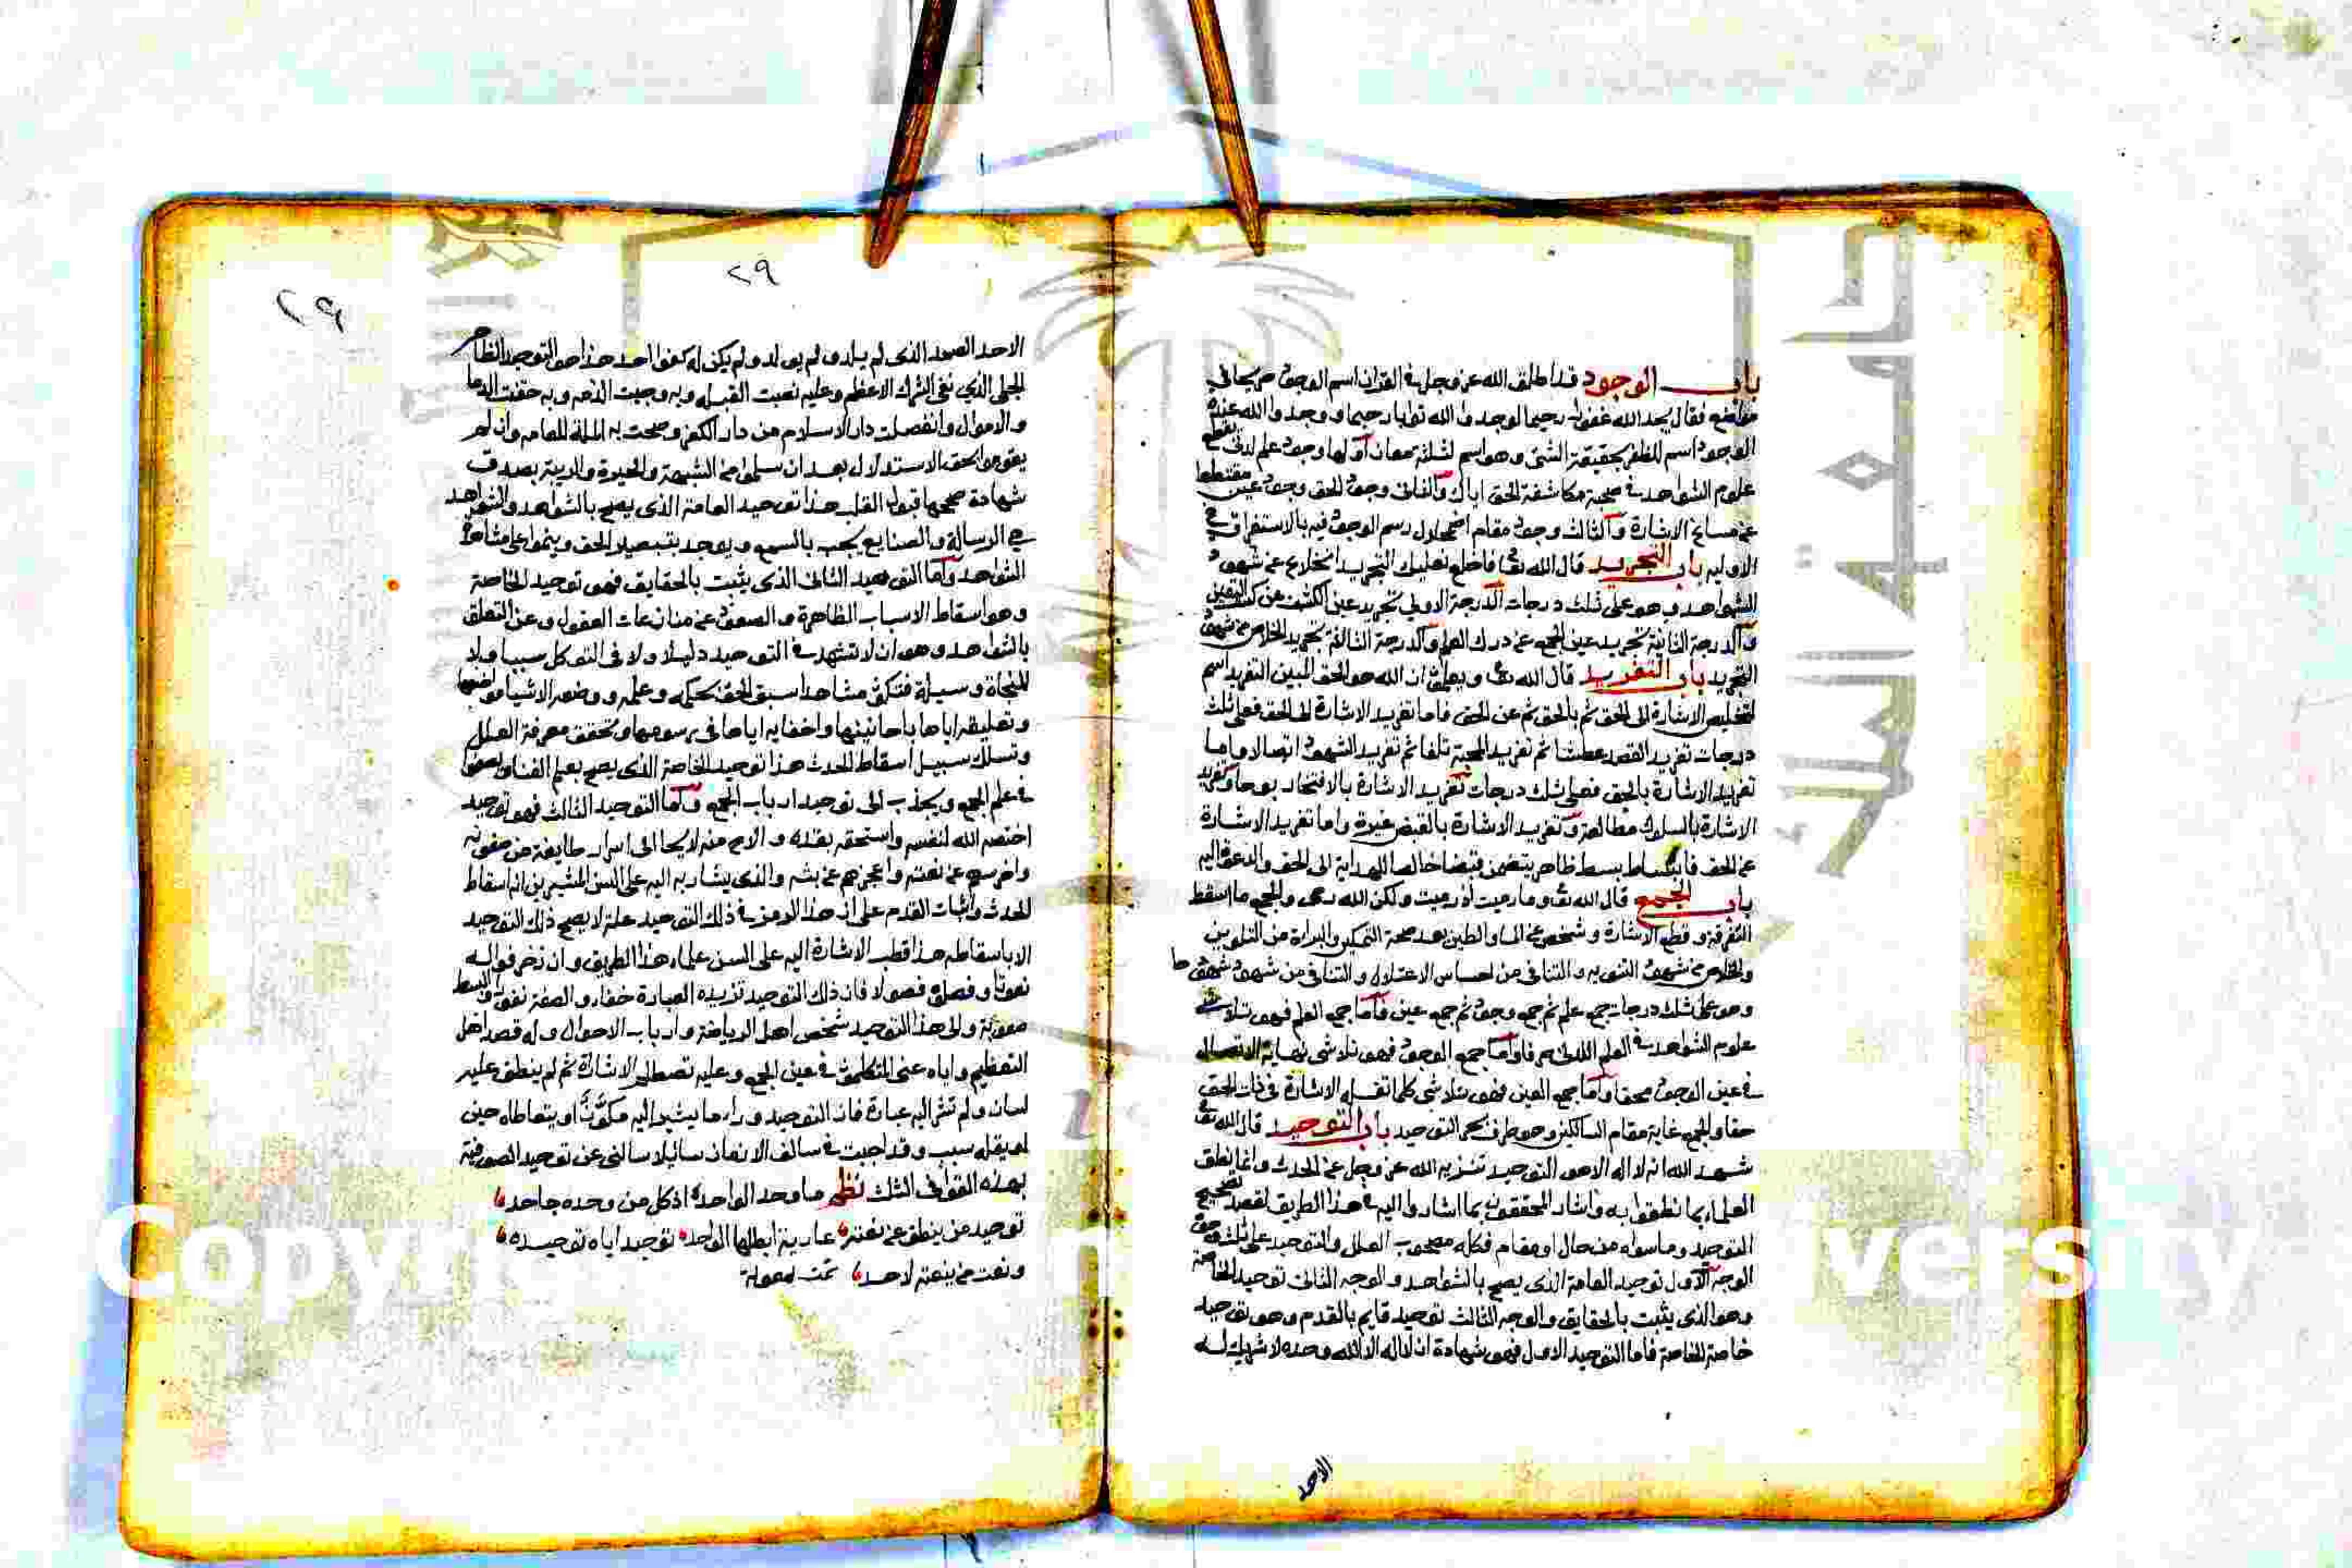 باب الوجود قد اطلق الله عز وجل في القران اسم الوجود صريحا في
مواضع فقال يجد الله غفورا رحيما لوجدوا الله توابا رحيما ووجدوا الله عنده
الوجود اسم للظفر بحقيقة الشئ وهو اسم لثلثة معان اولها وجود علم لدني يقطع
علوم الشواهد في صحبة مكاشفة الحق اياك والثاني وجود الحق وجود عين مقتطعا
عن مساغ الاشارة والثالث وجود مقام اضمحلال رسم الوجود فيه بالاستغراق في
الاوليه باب التجريد قال الله تعا فاخلع نعليك التجريد انخلاع عن شهود
الشواهد وهو على ثلث درجات الدرجة الاولي تجريد عين الكشف من كسب اليقين
والدرجة الثانية تجريد عين الجمع عن درك العلم والدرجة الثالثة تجريد الخلاص من شهود
التجريد باب التفريد قال الله تعا ويعلمون ان الله هو الحق المبين التفريد اسم
لتخليص الاشارة الى الحق ثم بالحق ثم عن الحق فاما تفريد الاشارة الى الحق فعلى ثلث
درجات تفريد القصد عطشا ثم تفريد المحبة تلفا ثم تفريد الشهود اتصالا واما
تفريد الاشارة بالحق فعلى ثلث درجات تفريد الاشارة بالافتخار بوحا وتفريد
الاشارة بالسلوك مطالعة وتفريد الاشارة بالقبض غيرة واما تفريد الاشارة
عن الحق فانبساط بسط ظاهر يتضمن قبضا خالصا للهداية الى الحق والدعوة اليه
باب الجمع قال الله تعا وما رميت اذ رميت ولكن الله رمى والجمع ما اسقط
التفرقة وقطع الاشارة وشخص عن الماء والطين بعد صحة التمكين والبراءة من التلوين
والخلاص من شهود الثنويه والتنافي من احساس الاعتلال والتنافي من شهود شهودها
وهو على ثلث درجات جمع علم ثم جمع وجود ثم جمع عين فاما جمع العلم فهو تلاشي
علوم الشواهد في العلم اللدني صرفا واما جمع الوجود فهو تلاشي نهاية الاتصال
في عين الوجود محقا واما جمع العين فهو تلاشي كلما تقله الاشارة في ذات الحق
حقا والجمع غاية مقام السالكين وهو طرف بحر التوحيد باب التوحيد قال الله تعا
شهد الله انه لا اله الا هو التوحيد تنزيه الله عز وجل عن الحدث وانما نطق
العلماء بما نطقوا به واشار المحققون بما اشاروا اليه في هذا الطريق لقصد تصحيح
التوحيد وما سواه من حال او مقام فكله مصحوب العلل والتوحيد على ثلث وجوه
الوجه الاول توحيد العامة الذي يصح بالشواهد والوجه الثاني توحيد الخاصة
وهو الذي يثبت بالحقايق والوجه الثالث توحيد قايم بالقدم وهو توحيد
خاصة الخاصة فاما التوحيد الاول فهو شهادة ان لا اله الا الله وحده لا شريك له
الاحد
٢٩
٢٩
الاحد الصمد الذي لم يلد ولم يولد ولم يكن له كفوا احد هذا هو التوحيد الظاهر
الجلي الذي نفى الشرك الاعظم وعليه نصبت القبلة وبه وجبت الذمه وبه حقنت الدما
والاموال وانفصلت دار الاسلام من دار الكفر وصحت به الملة للعامه وان لم
يقوموا بحق الاستدلال بعد ان سلموا من الشبهة والحيرة والريبة بصدق
شهادة صححها قبول القلب هذا توحيد العامة الذي يصح بالشواهد والشواهد
هي الرسالة والصنايع يجب بالسمع ويوجد بتبصير الحق وينموا على مشاهدة
الشواهد واما التوحيد الثاني الذي يثبت بالحقايق فهو توحيد الخاصة
وهو اسقاط الاسباب الظاهرة والصعود عن منازعات العقول وعن التعلق
بالشواهد وهو ان لا تشهد في التوحيد دليلا ولا في التوكل سببا ولا
للنجاة وسيلة فتكون مشاهدا سبق الحق بحكمه وعلمه ووضعه الاشيا مواضعها
وتعليقه اياها باحايينها واخفايه اياها في رسومها وتحقق معرفة العلل
وتسلك سبيل اسقاط الحدث هذا توحيد الخاصة الذي يصح بعلم الفنا ويصفوا
في علم الجمع ويجذب الى توحيد ارباب الجمع واما التوحيد الثالث فهو توحيد
اختصه الله لنفسه واستحقه بقدره والاح منه لايحا الى اسرار طايفة من صفوته
واخرسهم عن نعته واعجزهم عن بثه والذي يشار به اليه على السن المشيرين انه اسقاط
الحدث واثبات القدم على ان هذا الرمز في ذلك التوحيد علة لا يصح ذلك التوحيد
الا باسقاطه هذا قطب الاشارة اليه على السن علماء هذا الطريق وان زخرفوا له
نعوتا وفصلوه فصولا فان ذلك التوحيد تزيده العبارة خفاء والصفة نفورا والبسط
صعوبة والى هذا التوحيد شخص اهل الرياضة وارباب الاحوال وله قصد اهل
التعظيم واياه عنى المتكلمون في عين الجمع وعليه تصطلم الاشارة ثم لم ينطق عليه
لسان ولم تشر اليه عبارة فان التوحيد وراء ما يشير اليه مكون او يتعاطاه حين
او يقله سبب وقد اجبت في سالف الازمان سائلا سالني عن توحيد الصوفية
بهذه القوافي الثلث نظم ما وحد الواحد اذ كل من وحده جاحد
توحيد من ينطق عن نعته عارية ابطلها الواحد توحيد اياه توحيده
ونعت من ينعته لاحد تمت
Copy
versity